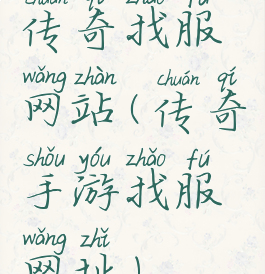 chuán qí zhǎo fú
传奇找服
wǎng zhàn ( chuán qí
网站(传奇
shǒu yóu zhǎo fú
手游找服
wǎng zhǐ
网址)